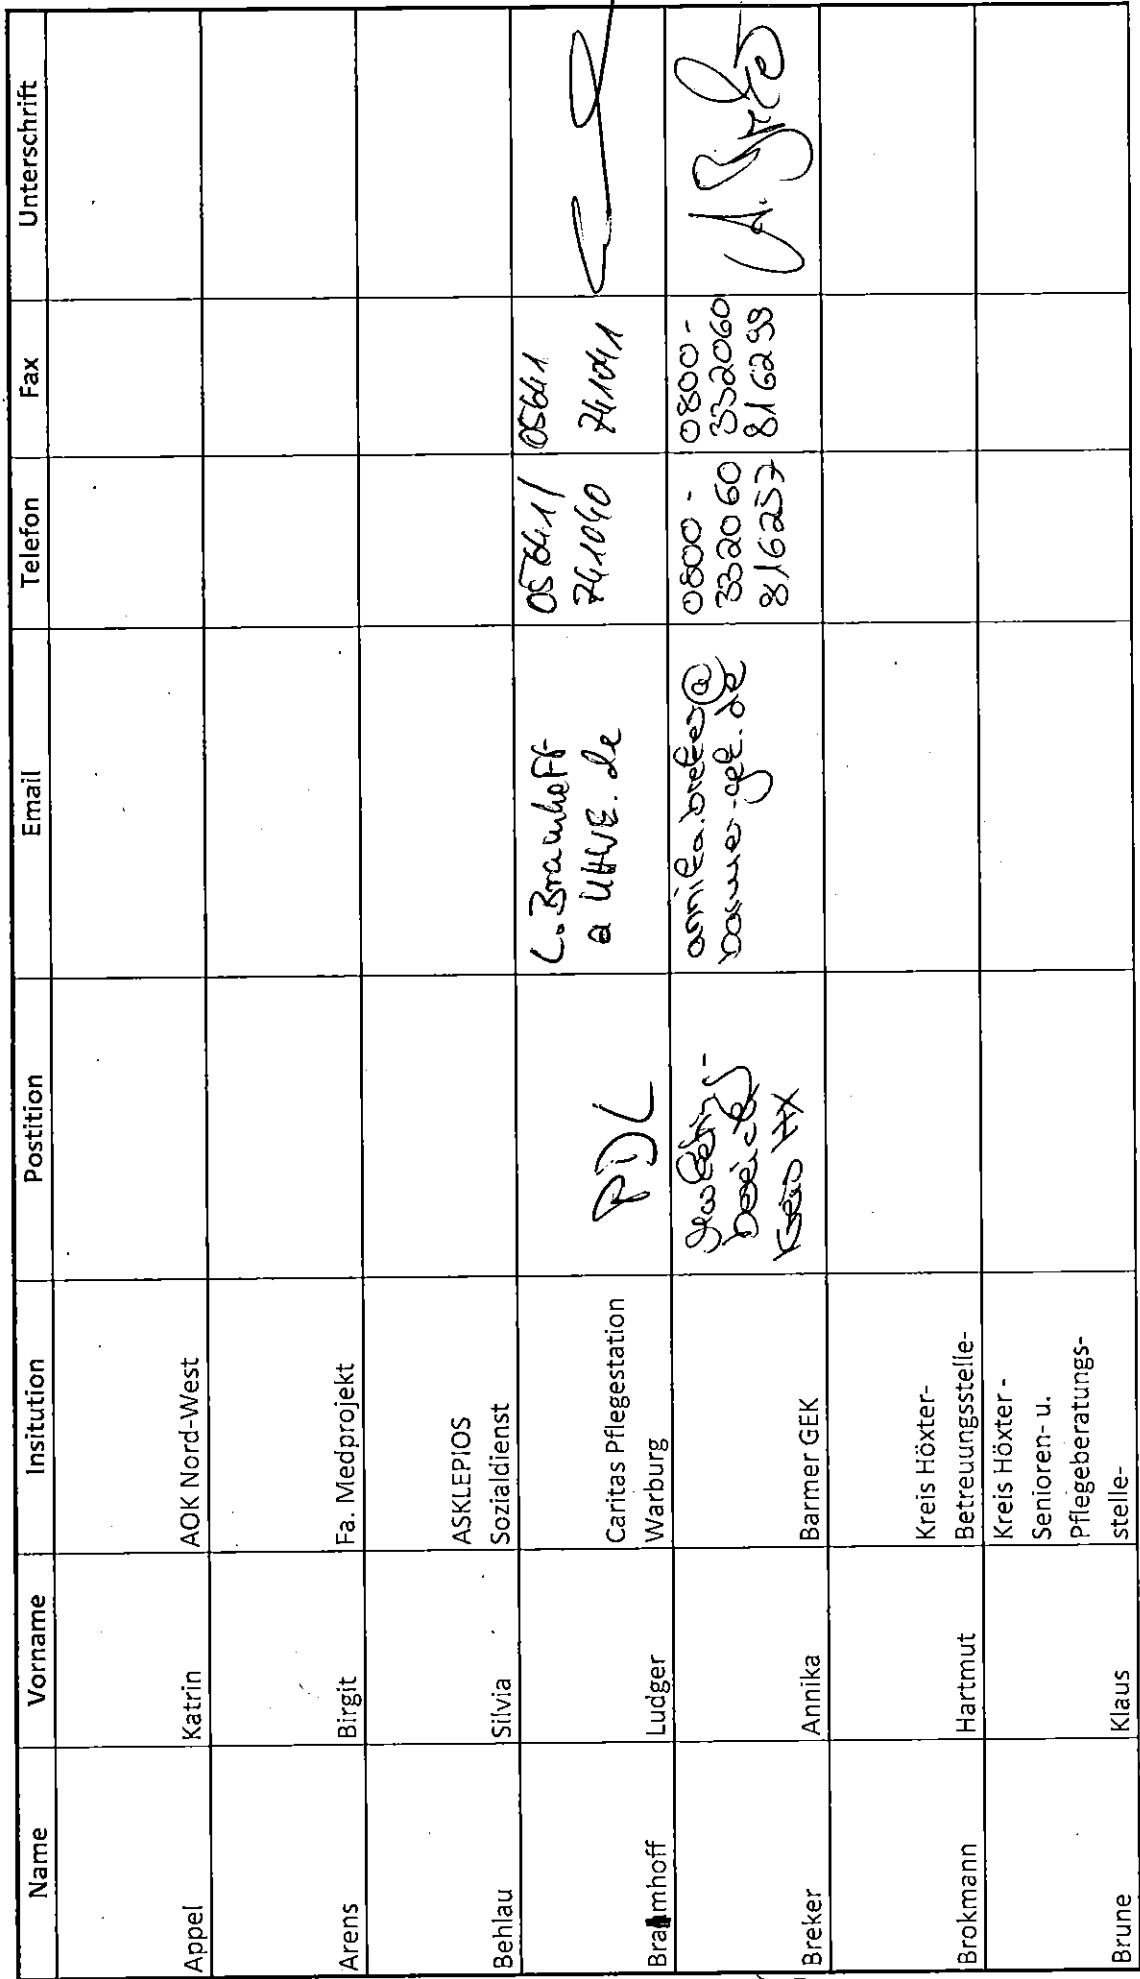 Name Vorname Insitution Postition Email Telefon Fax Unterschrift
Appel Katrin AOK Nord-West
Arens Birgit Fa. Medprojekt
Behlau Silvia ASKLEPIOS
Sozialdienst
Bramhoff Ludger Caritas Pflegestation
Warburg
PDL
L. Bramhoff
a UHWE.de
05641/
741040
05641
741041
Breker Annika Barmer GEK
Kreis HX
annika.breker@
barmer-gek.de
0800-
332060
816257
0800-
332060
816299
A. Breker
Brokmann Hartmut Kreis Höxter-
Betreuungsstelle-
Brune Klaus Kreis Höxter -
Senioren- u.
Pflegeberatungs-
stelle-